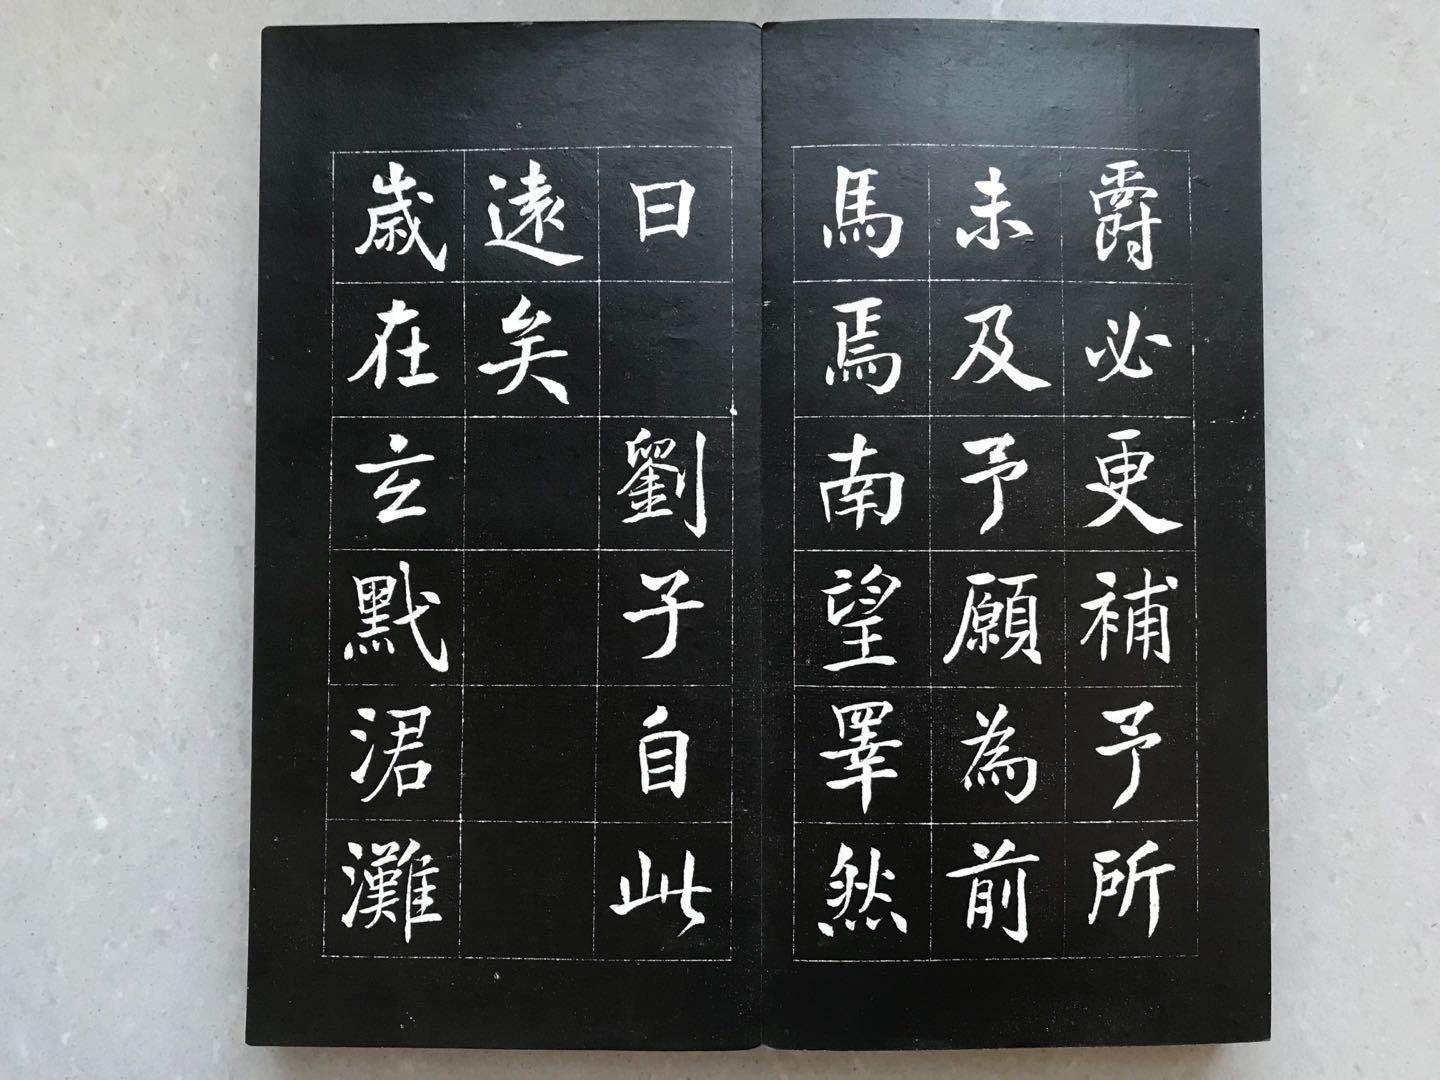 爵必更補予所
未及予願為前
馬焉南望睪然
曰　劉子自此
遠矣
歲在玄黓涒灘